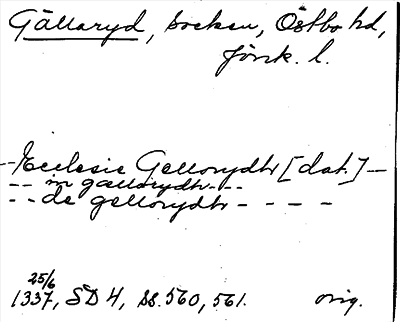 Gällaryd, socken, Östbo hd,
Jönk. l.
-- Ecclesie Gellorydh [dat.] --
-- in gællorydh - - -
- - de gellorydh - - - -
25/6
1337, SD 4, ss. 560, 561. orig.